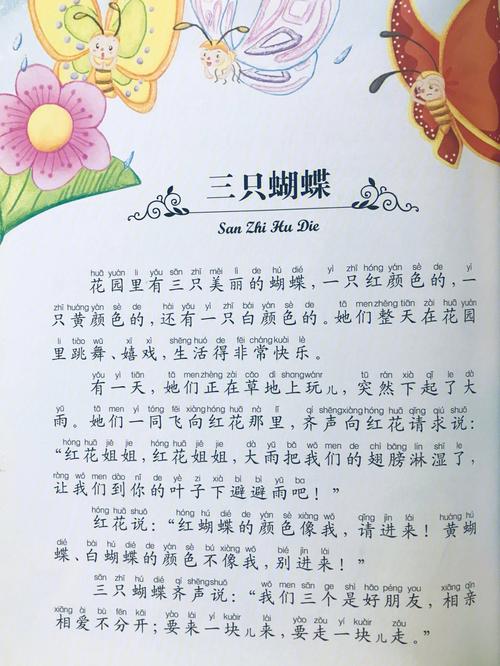 三只蝴蝶
San Zhi Hu Die
huā yuán lǐ yǒu sān zhī měi lì de hú dié yì zhī hóng yán sè de yì
花园里有三只美丽的蝴蝶，一只红颜色的，一
zhī huáng yán sè de hái yǒu yì zhī bái yán sè de tā men zhěng tiān zài huā yuán
只黄颜色的，还有一只白颜色的。她们整天在花园
lǐ tiào wǔ xī xì shēng huó de fēi cháng kuài lè
里跳舞、嬉戏，生活得非常快乐。
yǒu yì tiān tā men zhèng zài cǎo dì shang wánr tū rán xià qǐ le dà
有一天，她们正在草地上玩儿，突然下起了大
yǔ tā men yì tóng fēi xiàng hóng huā nà lǐ qí shēng xiàng hóng huā qǐng qiú shuō
雨。她们一同飞向红花那里，齐声向红花请求说：
hóng huā jiě jie hóng huā jiě jie dà yǔ bǎ wǒ men de chì bǎng lín shī le
“红花姐姐，红花姐姐，大雨把我们的翅膀淋湿了，
ràng wǒ men dào nǐ de yè zi xià bì bì yǔ ba
让我们到你的叶子下避避雨吧！”
hóng huā shuō hóng hú dié de yán sè xiàng wǒ qǐng jìn lái huáng hú
红花说：“红蝴蝶的颜色像我，请进来！黄蝴
dié bái hú dié de yán sè bú xiàng wǒ bié jìn lái
蝶、白蝴蝶的颜色不像我，别进来！”
sān zhī hú dié qí shēng shuō wǒ men sān gè shì hǎo péng yǒu xiāng qīn
三只蝴蝶齐声说：“我们三个是好朋友，相亲
xiāng ài bù fēn kāi yào lái yí kuàir lái yào zǒu yí kuàir zǒu
相爱不分开；要来一块儿来，要走一块儿走。”